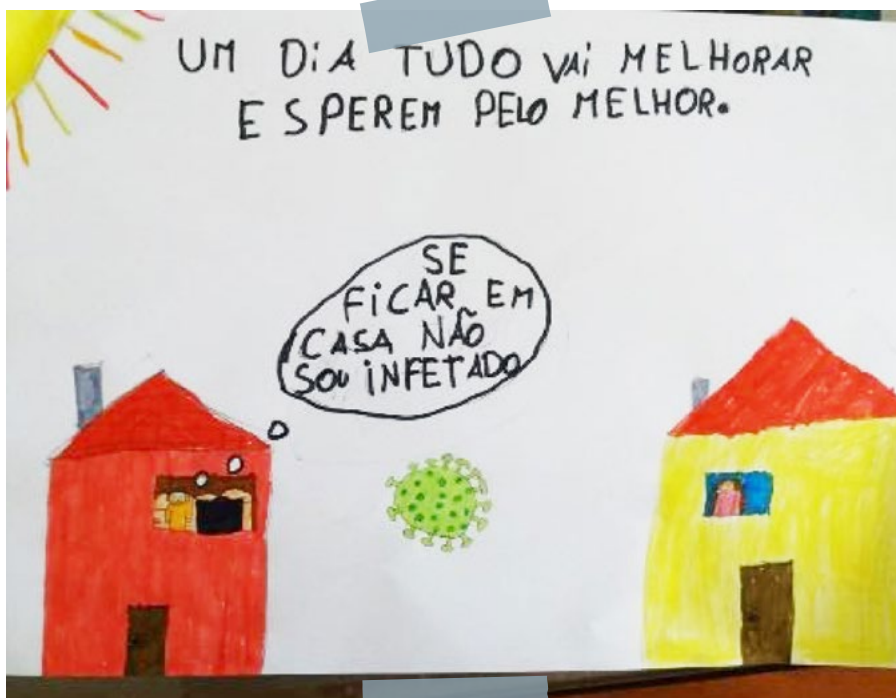 UM DiA TUDO VAi MELHORAR
ESPEREM PELO MELHOR.
SE
FiCAR EM
CASA NÃO
SOU iNFETADO